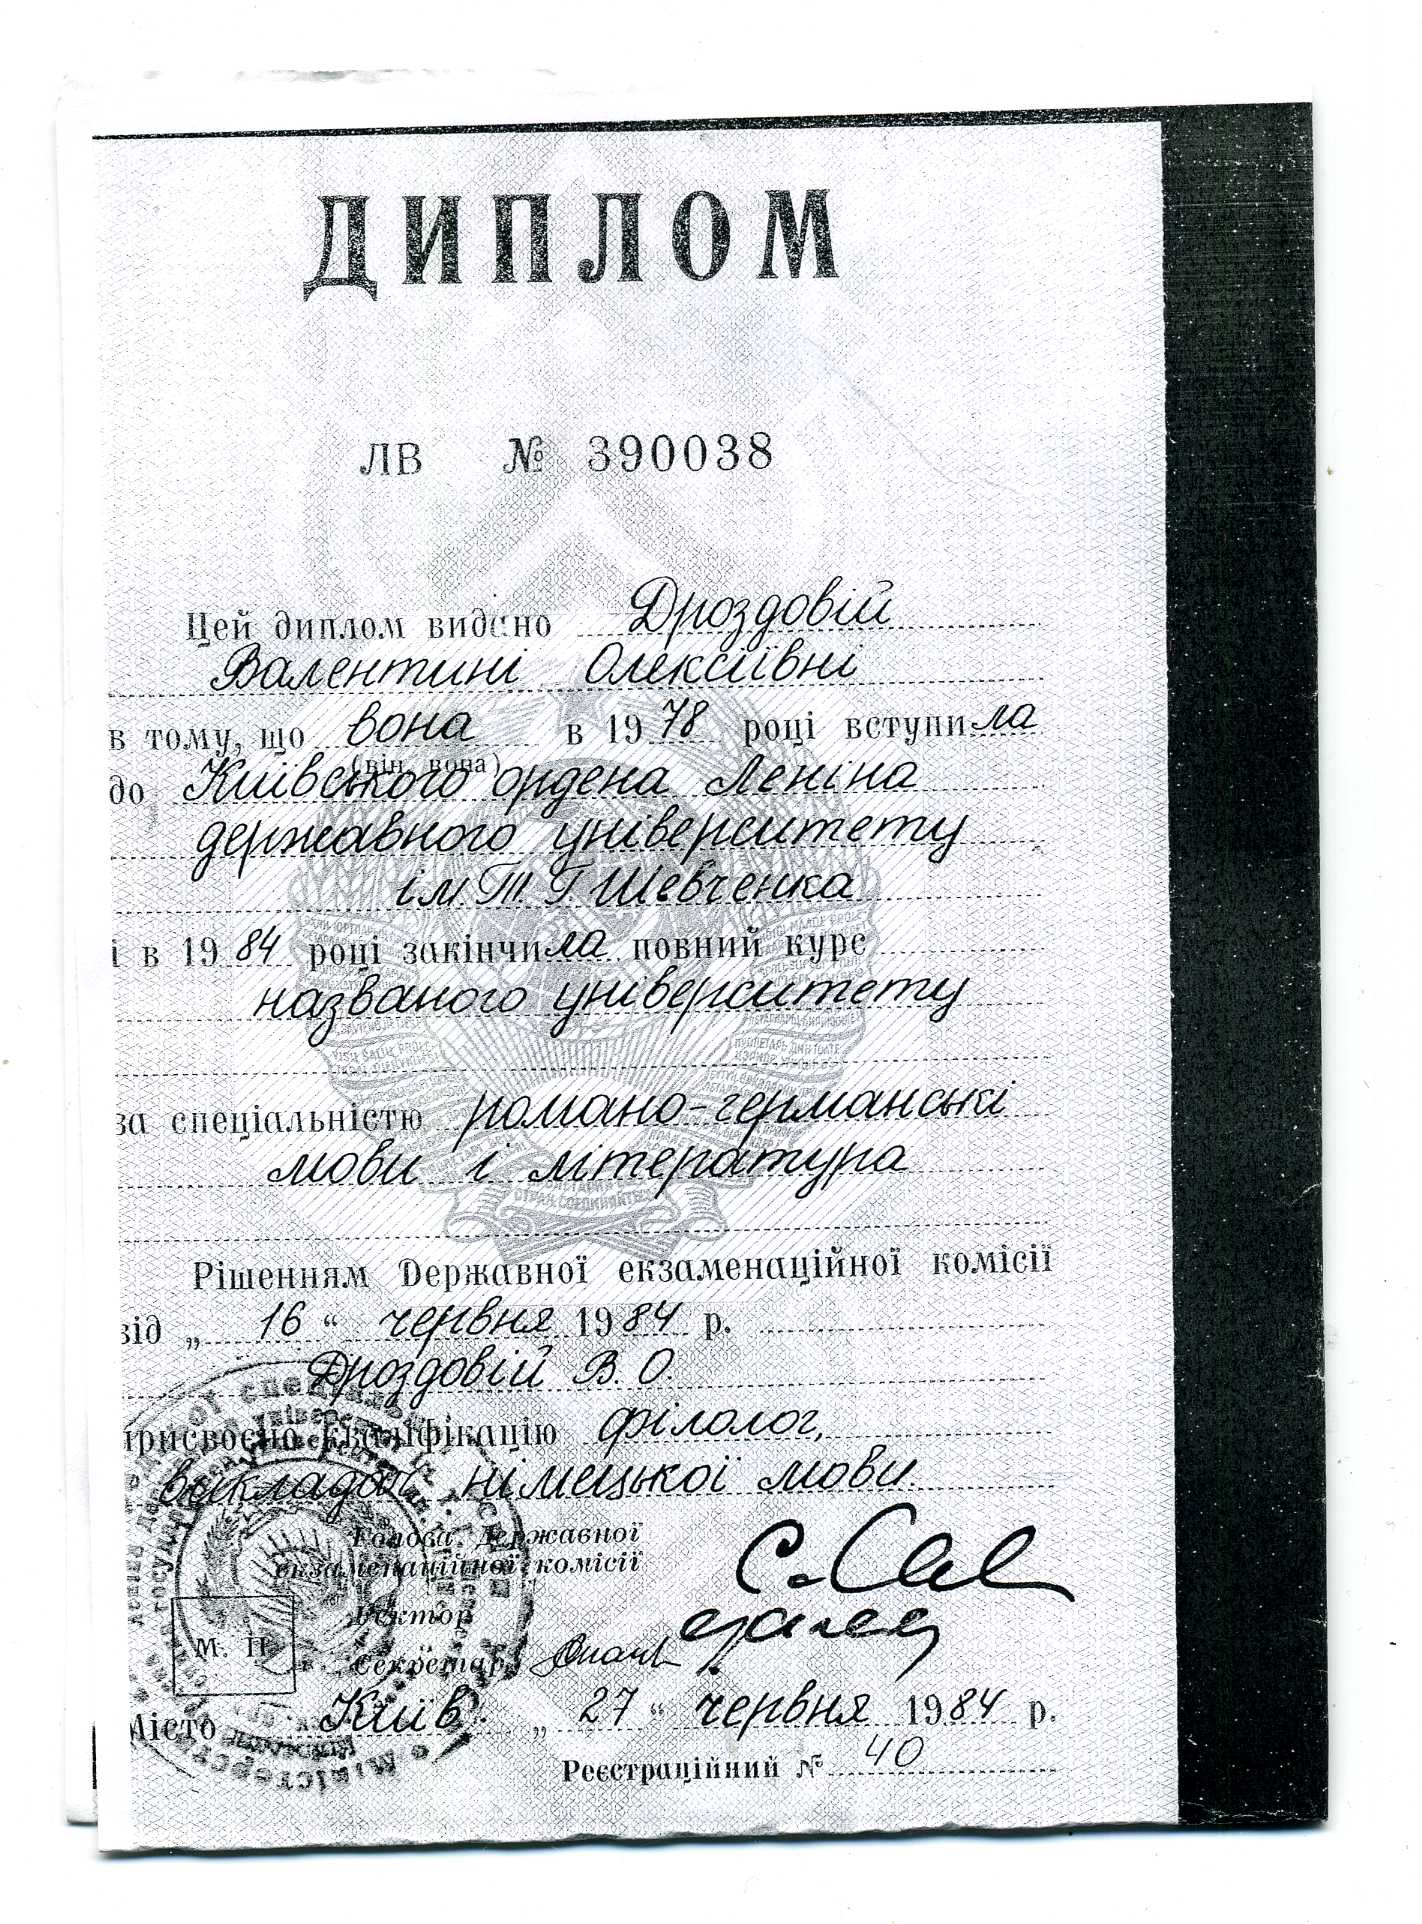 ДИПЛОМ
ЛВ № 390038
Цей диплом видано Дроздовій
Валентині Олексіївні
в тому, що вона в 1978 році вступила
(він, вона)
до Київського ордена Леніна
державного університету
ім. Т. Г. Шевченка
і в 1984 році закінчила повний курс
названого університету
за спеціальністю романо-германські
мови і література
Рішенням Державної екзаменаційної комісії
від „16“ червня 1984 р.
Дроздовій В. О.
присвоєно кваліфікацію філолог,
викладач німецької мови.
Голова Державної
екзаменаційної комісії
Ректор
М. П.
Секретар
Місто Київ „27“ червня 1984 р.
Реєстраційний № 40